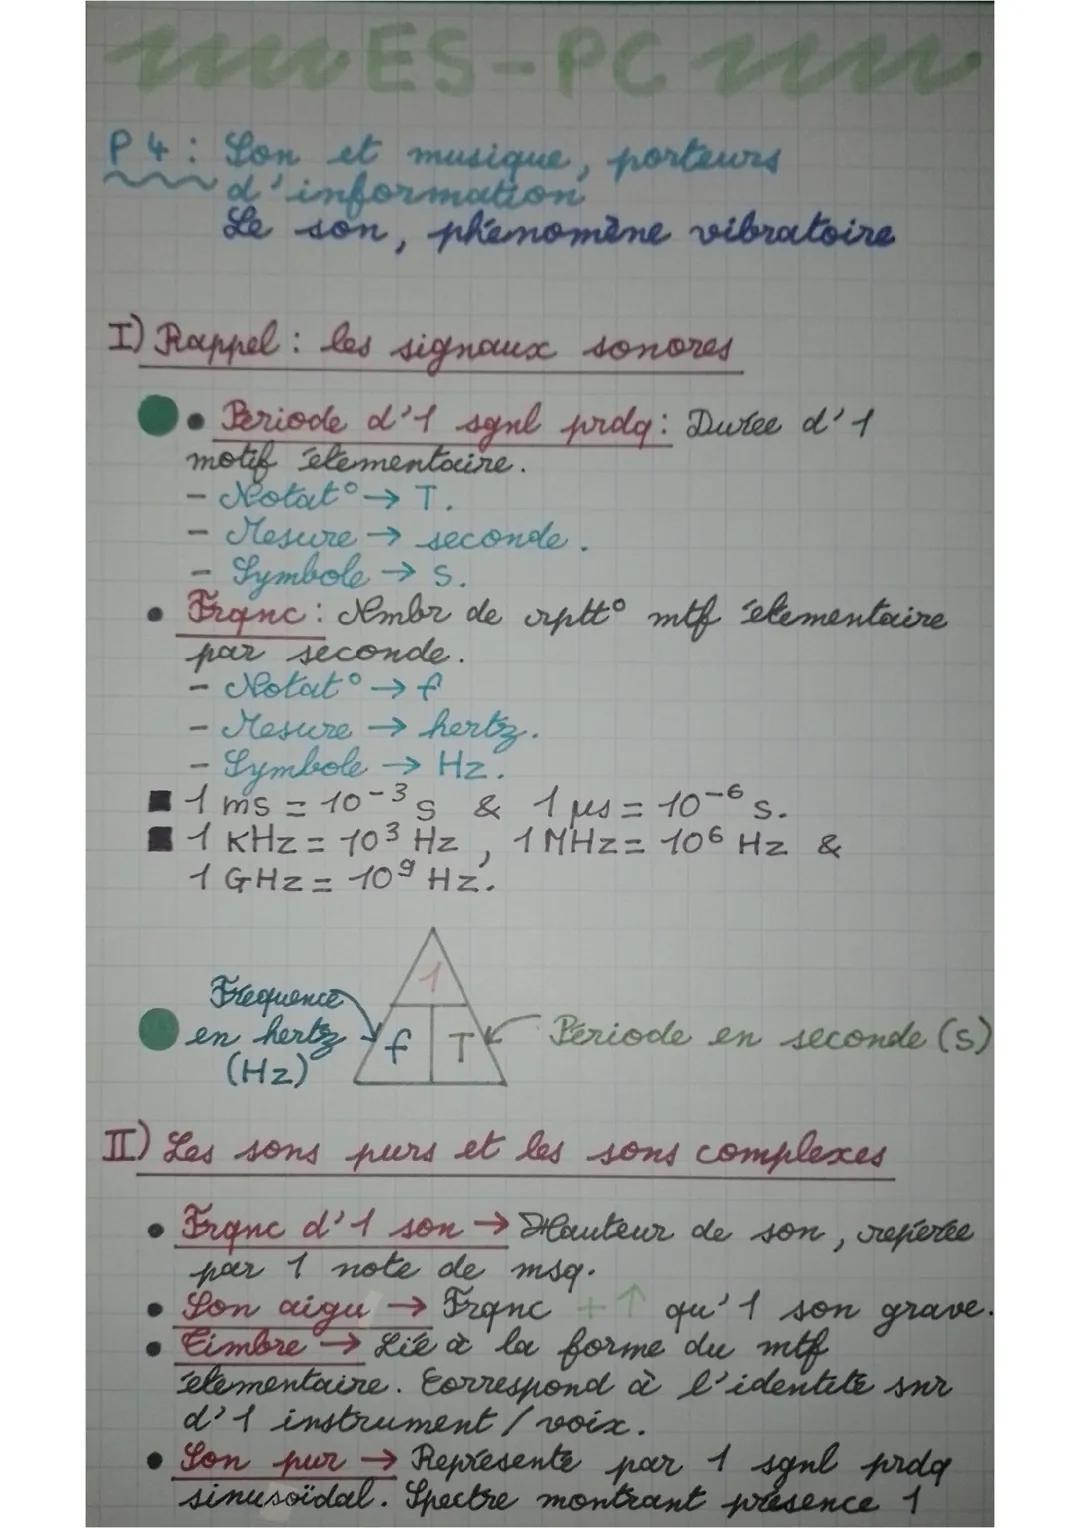 ES-PC
P4 : Son et musique, porteurs
d'information
Le son, phénomène vibratoire
I) Rappel : les signaux sonores
• Période d'1 sgnl prdq : Durée d'1
motif élémentaire.
- Notat° → T.
- Mesure → seconde.
- Symbole → s.
• Frqnc : Nmbr de rptt° mtf élémentaire
par seconde.
- Notat° → f
- Mesure → hertz.
- Symbole → Hz.
1 ms = 10⁻³ s & 1 µs = 10⁻⁶ s.
1 KHz = 10³ Hz, 1 MHz = 10⁶ Hz &
1 GHz = 10⁹ Hz.
1
Fréquence
en hertz
(Hz)
f T
Période en seconde (s)
II) Les sons purs et les sons complexes
• Frqnc d'1 son → Hauteur de son, repérée
par 1 note de msq.
• Son aigu → Frqnc +↑ qu'1 son grave.
• Timbre → Lié à la forme du mtf
élémentaire. Correspond à l'identité snr
d'1 instrument / voix.
• Son pur → Représenté par 1 sgnl prdq
sinusoïdal. Spectre montrant présence 1